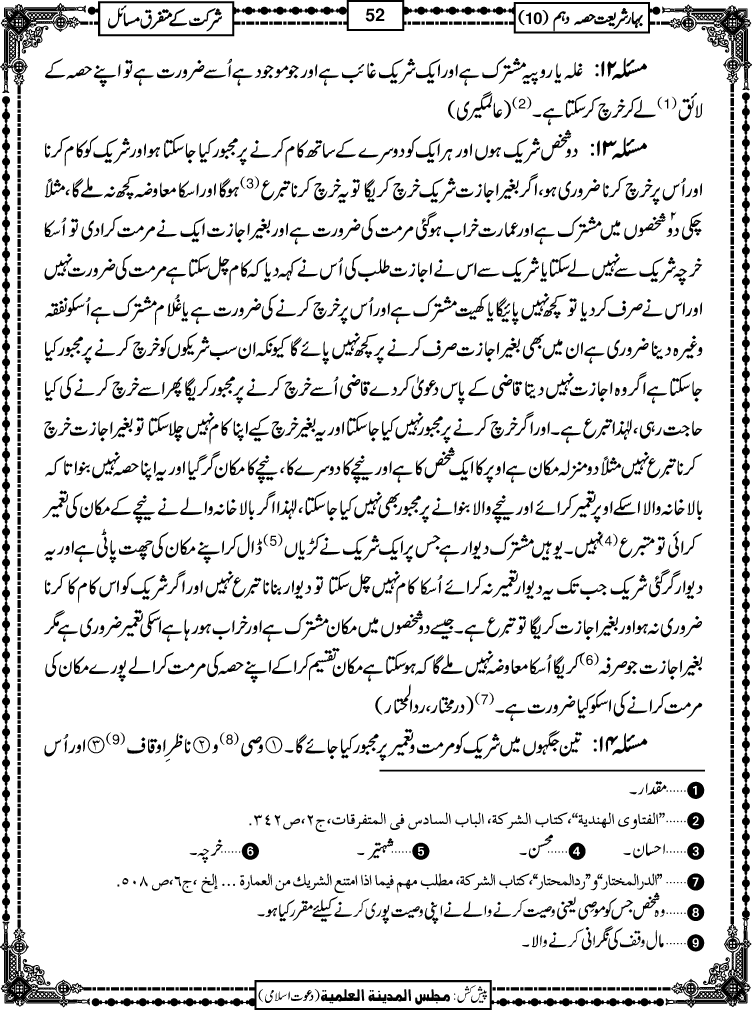 بہار شریعت حصہ دہم (10)
52
شرکت کے متفرق مسائل
مسئلہ ۱۲: غلہ یا روپیہ مشترک ہے اور ایک شریک غائب ہے اور جو موجود ہے اُسے ضرورت ہے تو اپنے حصہ کے
لائق (1) لے کر خرچ کرسکتا ہے۔(2) (عالمگیری)
مسئلہ ۱۳: دو شخص شریک ہوں اور ہر ایک کو دوسرے کے ساتھ کام کرنے پر مجبور کیا جاسکتا ہو اور شریک کو کام کرنا
اور اُس پر خرچ کرنا ضروری ہو، اگر بغیر اجازت شریک خرچ کریگا تو یہ خرچ کرنا تبرع (3) ہوگا اور اسکا معاوضہ کچھ نہ ملے گا، مثلاً
چکی دو۲ شخصوں میں مشترک ہے اور عمارت خراب ہوگئی مرمت کی ضرورت ہے اور بغیر اجازت ایک نے مرمت کرا دی تو اُسکا
خرچہ شریک سے نہیں لے سکتا یا شریک سے اس نے اجازت طلب کی اُس نے کہہ دیا کہ کام چل سکتا ہے مرمت کی ضرورت نہیں
اور اس نے صرف کر دیا تو کچھ نہیں پائیگا یا کھیت مشترک ہے اور اُس پر خرچ کرنے کی ضرورت ہے یا غُلام مشترک ہے اُسکو نفقہ
وغیرہ دینا ضروری ہے ان میں بھی بغیر اجازت صرف کرنے پر کچھ نہیں پائے گا کیونکہ ان سب شریکوں کو خرچ کرنے پر مجبور کیا
جاسکتا ہے اگر وہ اجازت نہیں دیتا قاضی کے پاس دعویٰ کر دے قاضی اُسے خرچ کرنے پر مجبور کریگا پھر اسے خرچ کرنے کی کیا
حاجت رہی، لہٰذا تبرع ہے۔ اور اگر خرچ کرنے پر مجبور نہیں کیا جاسکتا اور یہ بغیر خرچ کیے اپنا کام نہیں چلاسکتا تو بغیر اجازت خرچ
کرنا تبرع نہیں مثلاً دو منزلہ مکان ہے اوپر کا ایک شخص کا ہے اور نیچے کا دوسرے کا، نیچے کا مکان گر گیا اور یہ اپنا حصہ نہیں بنواتا کہ
بالا خانہ والا اسکے اوپر تعمیر کرائے اور نیچے والا بنوانے پر مجبور بھی نہیں کیا جاسکتا، لہٰذا اگر بالا خانہ والے نے نیچے کے مکان کی تعمیر
کرائی تو متبرع (4) نہیں۔ یوہیں مشترک دیوار ہے جس پر ایک شریک نے کڑیاں (5) ڈال کر اپنے مکان کی چھت پاٹی ہے اور یہ
دیوار گرگئی شریک جب تک یہ دیوار تعمیر نہ کرائے اُسکا کام نہیں چل سکتا تو دیوار بنانا تبرع نہیں اور اگر شریک کو اس کام کا کرنا
ضروری نہ ہو اور بغیر اجازت کریگا تو تبرع ہے۔ جیسے دو شخصوں میں مکان مشترک ہے اور خراب ہو رہا ہے اسکی تعمیر ضروری ہے مگر
بغیر اجازت جو صرفہ (6) کریگا اُسکا معاوضہ نہیں ملے گا کہ ہو سکتا ہے مکان تقسیم کرا کے اپنے حصہ کی مرمت کرالے پورے مکان کی
مرمت کرانے کی اسکو کیا ضرورت ہے۔(7) (درمختار، ردالمحتار)
مسئلہ ۱۴: تین جگہوں میں شریک کو مرمت و تعمیر پر مجبور کیا جائے گا۔ ① وصی (8) و ② ناظر اوقاف (9) ③ اور اُس
1 ......مقدار۔
2 ......"الفتاوی الھندیة"، کتاب الشرکة، الباب السادس فی المتفرقات، ج۲، ص۳۴۲.
3 ......احسان۔ 4 ......محسن۔ 5 ......شہتیر۔ 6 ......خرچہ۔
7 ......"الدرالمختار" و"ردالمحتار"، کتاب الشرکة، مطلب مھم فیما اذا امتنع الشریك من العمارة ... إلخ، ج۶، ص ۵۰۸.
8 ......وہ شخص جس کو موصی یعنی وصیت کرنے والے نے اپنی وصیت پوری کرنے کیلئے مقرر کیا ہو۔
9 ......مال وقف کی نگرانی کرنے والا۔
پیش کش: مجلس المدینة العلمیة (دعوت اسلامی)